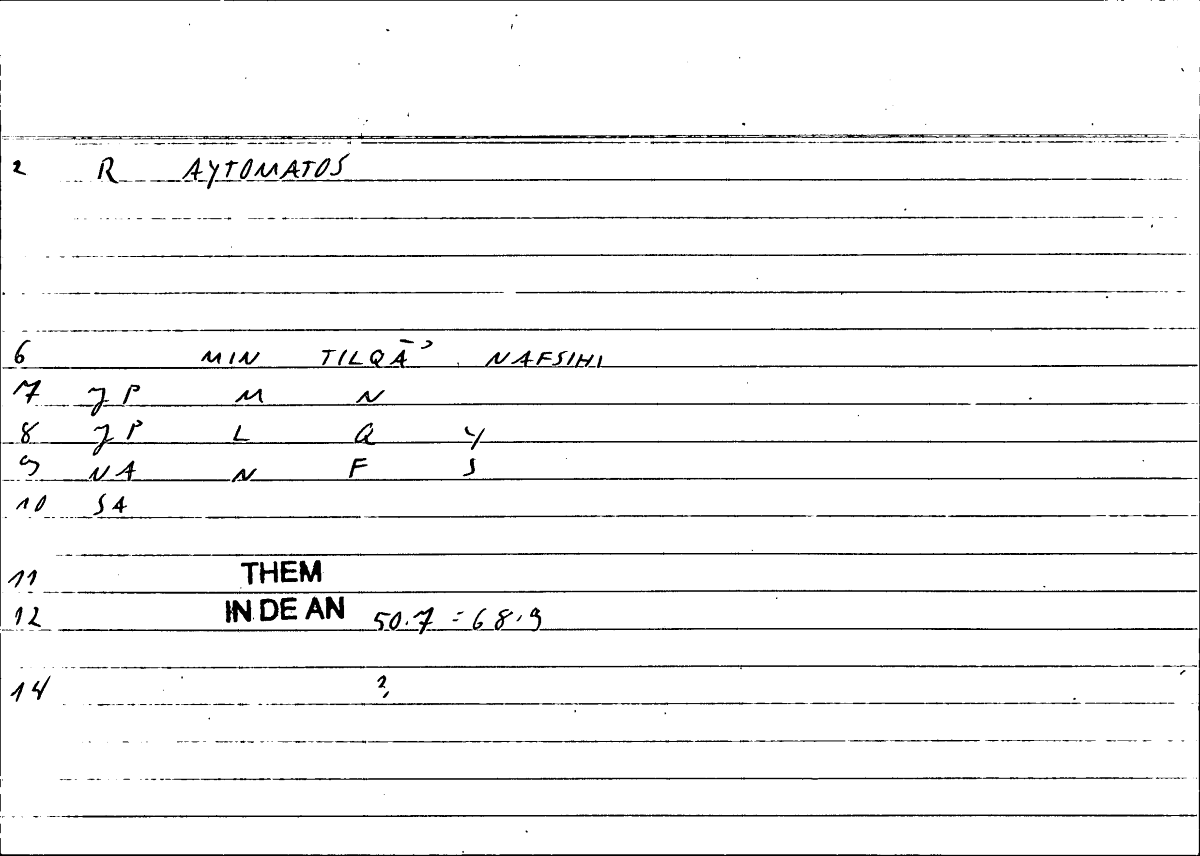 2 R AYTOMATOS
6 MIN TILQĀʾ NAFSIHI
7 JP M N
8 JP L Q Y
9 NA N F S
10 SA
11 THEM
12 IN DE AN 50.7 = 68.9
14 ?